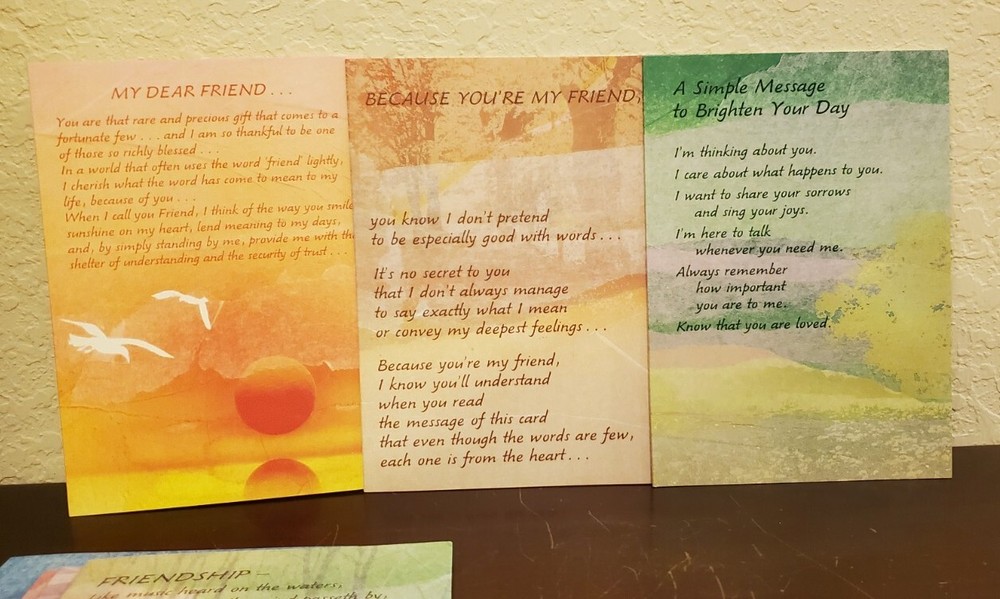 MY DEAR FRIEND . . .
You are that rare and precious gift that comes to a
fortunate few . . . and I am so thankful to be one
of those so richly blessed . . .
In a world that often uses the word 'friend' lightly,
I cherish what the word has come to mean to my
life, because of you . . .
When I call you Friend, I think of the way you smile
sunshine on my heart, lend meaning to my days,
and, by simply standing by me, provide me with the
shelter of understanding and the security of trust . . .
BECAUSE YOU'RE MY FRIEND,
you know I don't pretend
to be especially good with words . . .
It's no secret to you
that I don't always manage
to say exactly what I mean
or convey my deepest feelings . . .
Because you're my friend,
I know you'll understand
when you read
the message of this card
that even though the words are few,
each one is from the heart . . .
A Simple Message
to Brighten Your Day
I'm thinking about you.
I care about what happens to you.
I want to share your sorrows
and sing your joys.
I'm here to talk
whenever you need me.
Always remember
how important
you are to me.
Know that you are loved.
FRIENDSHIP –
Like music heard on the waters,
passeth by,